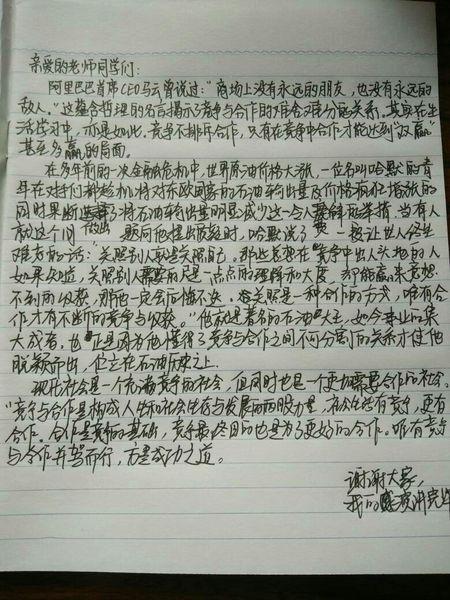 亲爱的老师同学们:
阿里巴巴首席CEO马云曾说过:“商场上没有永远的朋友,也没有永远的
敌人。”这蕴含哲理的名言揭示了竞争与合作的难舍难分的关系。其实在生
活学习中,亦是如此,竞争不排斥合作,只有在竞争中合作才能达到“双赢”
甚至多赢的局面。
在多年前的一次金融危机中,世界原油价格大涨,一位名叫哈默的青
年在对手们都趁机将对东欧国家的石油输出量及价格有不增涨的
同时果断选择了将石油输出量明显减少这一令人费解的举措,当有人
就这个问题向他提出质疑时,哈默说了一段让世人终生
难忘的话:“关照别人就是关照自己。那些总想在竞争中出人头地的人
如果知道,关照别人需要的只是一点点的理解和大度,却能赢来意想
不到的收获,那他一定会后悔不迭。关照是一种合作的方式,唯有合
作才有不断的竞争与收获。”他就是著名的石油大王,如今事业的集
大成者。也正是因为他懂得了竞争与合作之间不可分割的关系才使他
脱颖而出,伫立在石油历史之上。
现代社会是一个充满竞争的社会,但同时也是一个更加需要合作的社会。
“竞争与合作是构成人生和社会生存与发展的两股力量,有公平有竞争,更有
合作。合作是竞争的基础,竞争最终目的也是为了更好的合作。唯有竞争
与合作并驾而行,方是成功之道。
谢谢大家,
我的演讲完毕